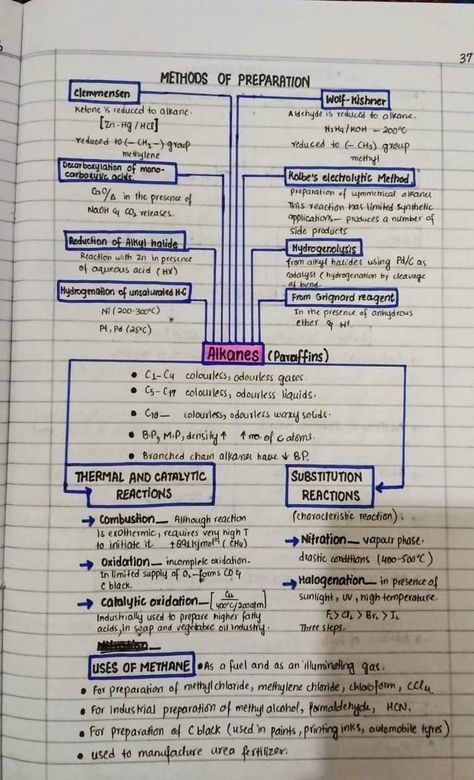 37
METHODS OF PREPARATION
Clemmensen
Ketone is reduced to alkane.
[Zn-Hg/HCl]
reduced to (-CH₂-) group
methylene
Decarboxylation of mono-
carboxylic acids.
CaO/Δ in the presence of
NaOH & CO₂ releases.
Reduction of Alkyl halide
Reaction with Zn in presence
of aqueous acid (HX)
Hydrogenation of unsaturated H-C
Ni (200-300°C)
Pt, Pd (25°C)
Wolf-Kishner
Aldehyde is reduced to alkane.
N₂H₄/KOH - 200°C
reduced to (-CH₃) group
methyl
Kolbe's electrolytic Method
Preparation of symmetrical alkanes
This reaction has limited synthetic
applications— produces a number of
side products
Hydrogenolysis
from alkyl halides using Pd/C as
catalyst (hydrogenation by cleavage
of bond.
From Grignard reagent
In the presence of anhydrous
ether & H⁺.
Alkanes (Paraffins)
• C₁-C₄ colourless, odourless gases.
• C₅-C₁₇ colourless, odourless liquids.
• C₁₈— colourless, odourless waxy solids.
• B.P, M.P, density ↑ ↑ no. of c atoms.
• Branched chain alkanes have ↓ B.P.
THERMAL AND CATALYTIC
REACTIONS
→ Combustion— Although reaction
is exothermic, requires very high T
to initiate it. +891kjmol⁻¹ (CH₄)
→ Oxidation— incomplete oxidation.
In limited supply of O₂ - forms CO &
C black.
→ Catalytic oxidation— [Cu
400°C/200atm]
Industrially used to prepare higher fatty
acids, in soap and vegetable oil industry.
SUBSTITUTION
REACTIONS
(characteristic reaction).
→ Nitration— vapour phase.
drastic conditions (400-500°C)
→ Halogenation— in presence of
sunlight, UV, high temperature.
F₂ > Cl₂ > Br₂ > I₂
Three steps.
USES OF METHANE • As a fuel and as an illuminating gas.
• For preparation of methyl chloride, methylene chloride, chloroform, CCl₄.
• For industrial preparation of methyl alcohol, formaldehyde, HCN.
• For preparation of C black (used in paints, printing inks, automobile tyres)
• used to manufacture urea fertilizer.